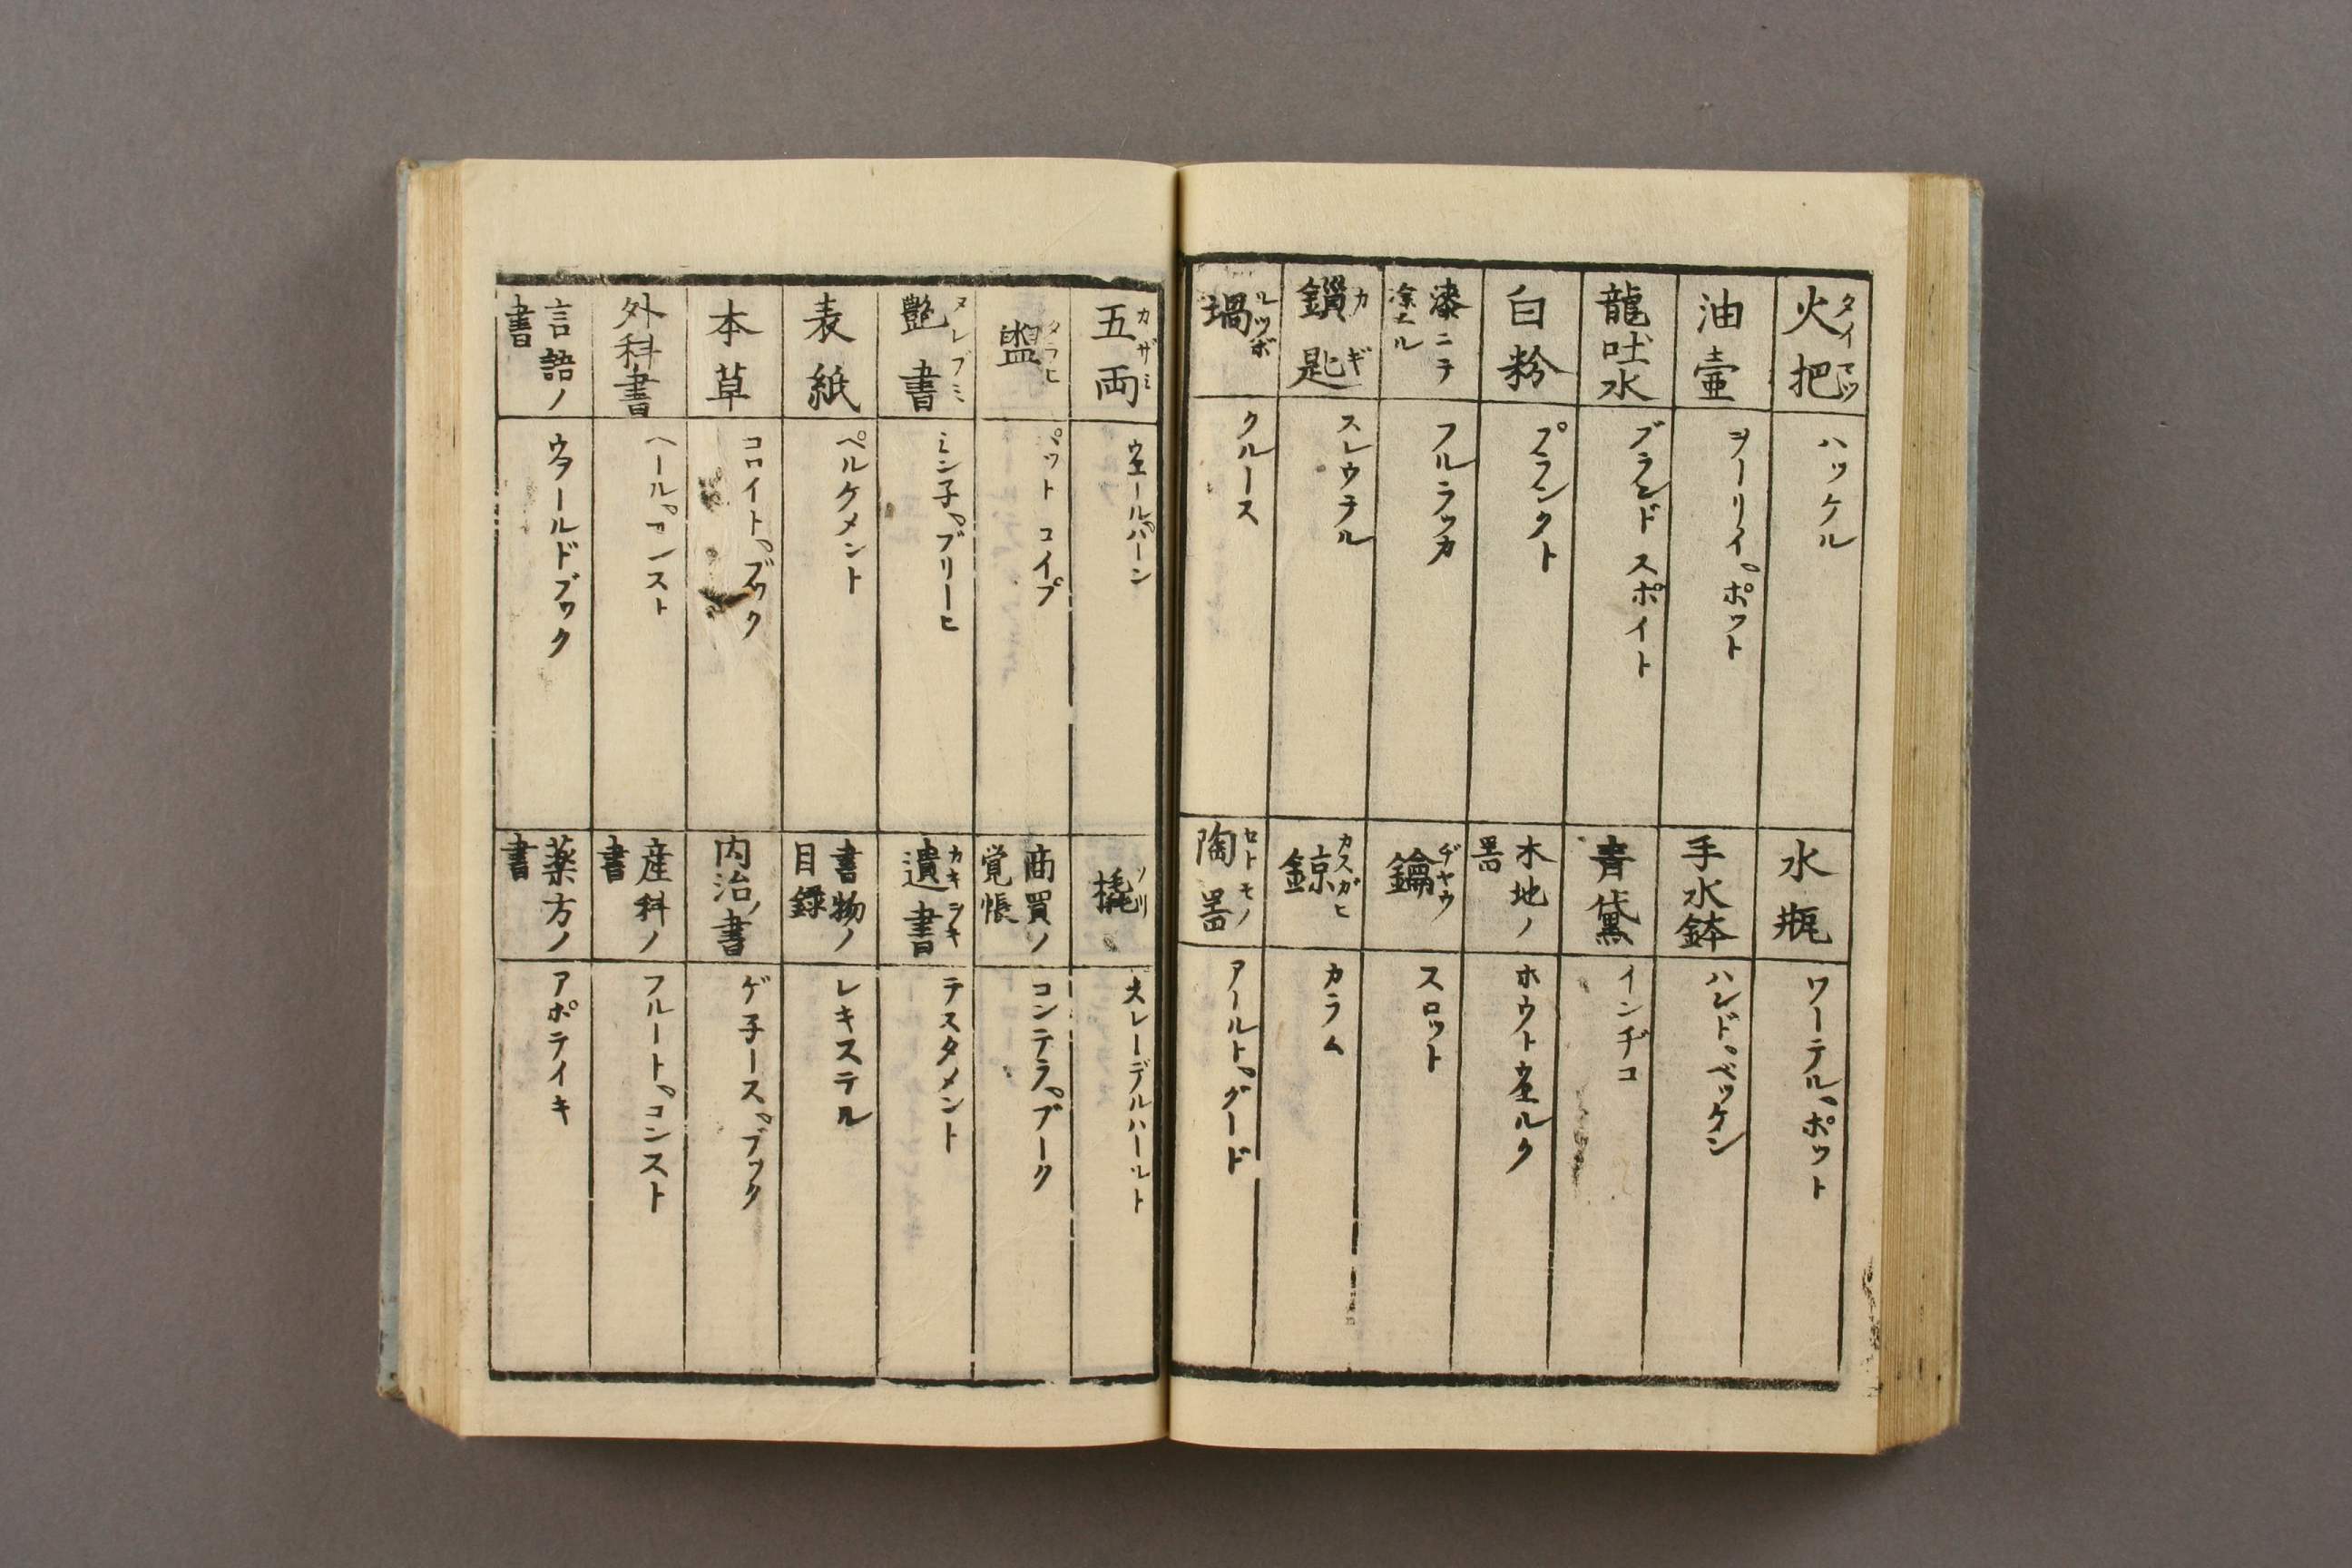 火把 タイマツ
ハツケル
水瓶
ワーテル、ポツト
油壷
ヲーリイ、ポツト
手水鉢
ハンド、ベツケン
龍吐水
ブランド スポイト
青黛
インヂコ
白粉
プランクト
木地ノ
器
ホウト ウエルク
漆ニテ
塗ル
フルラツカ
鑰 ヂヤウ
スロツト
鎖匙 カギ
スレウテル
カスガヒ
カラム
堝 ルツボ
クルース
陶器 セトモノ
アールト、グード
五両 カザミ
ウエールハーン
ノリ
スレーデルハールト
盥 タラヒ
パツト コイプ
商買ノ
覚帳
コンテラ、ブーク
艶書 ヌレブミ
ミン子、ブリーヒ
遺書 カキヲキ
テスタメント
表紙
ペルケメント
書物ノ
目録
レキステル
本草
コロイト、ブツク
内治ノ書
ゲ子ース、ブツク
外科書
ヘール、コンスト
産科ノ
書
フルート、コンスト
言語ノ
書
ウヲールドブツク
薬方ノ
書
アポテイキ